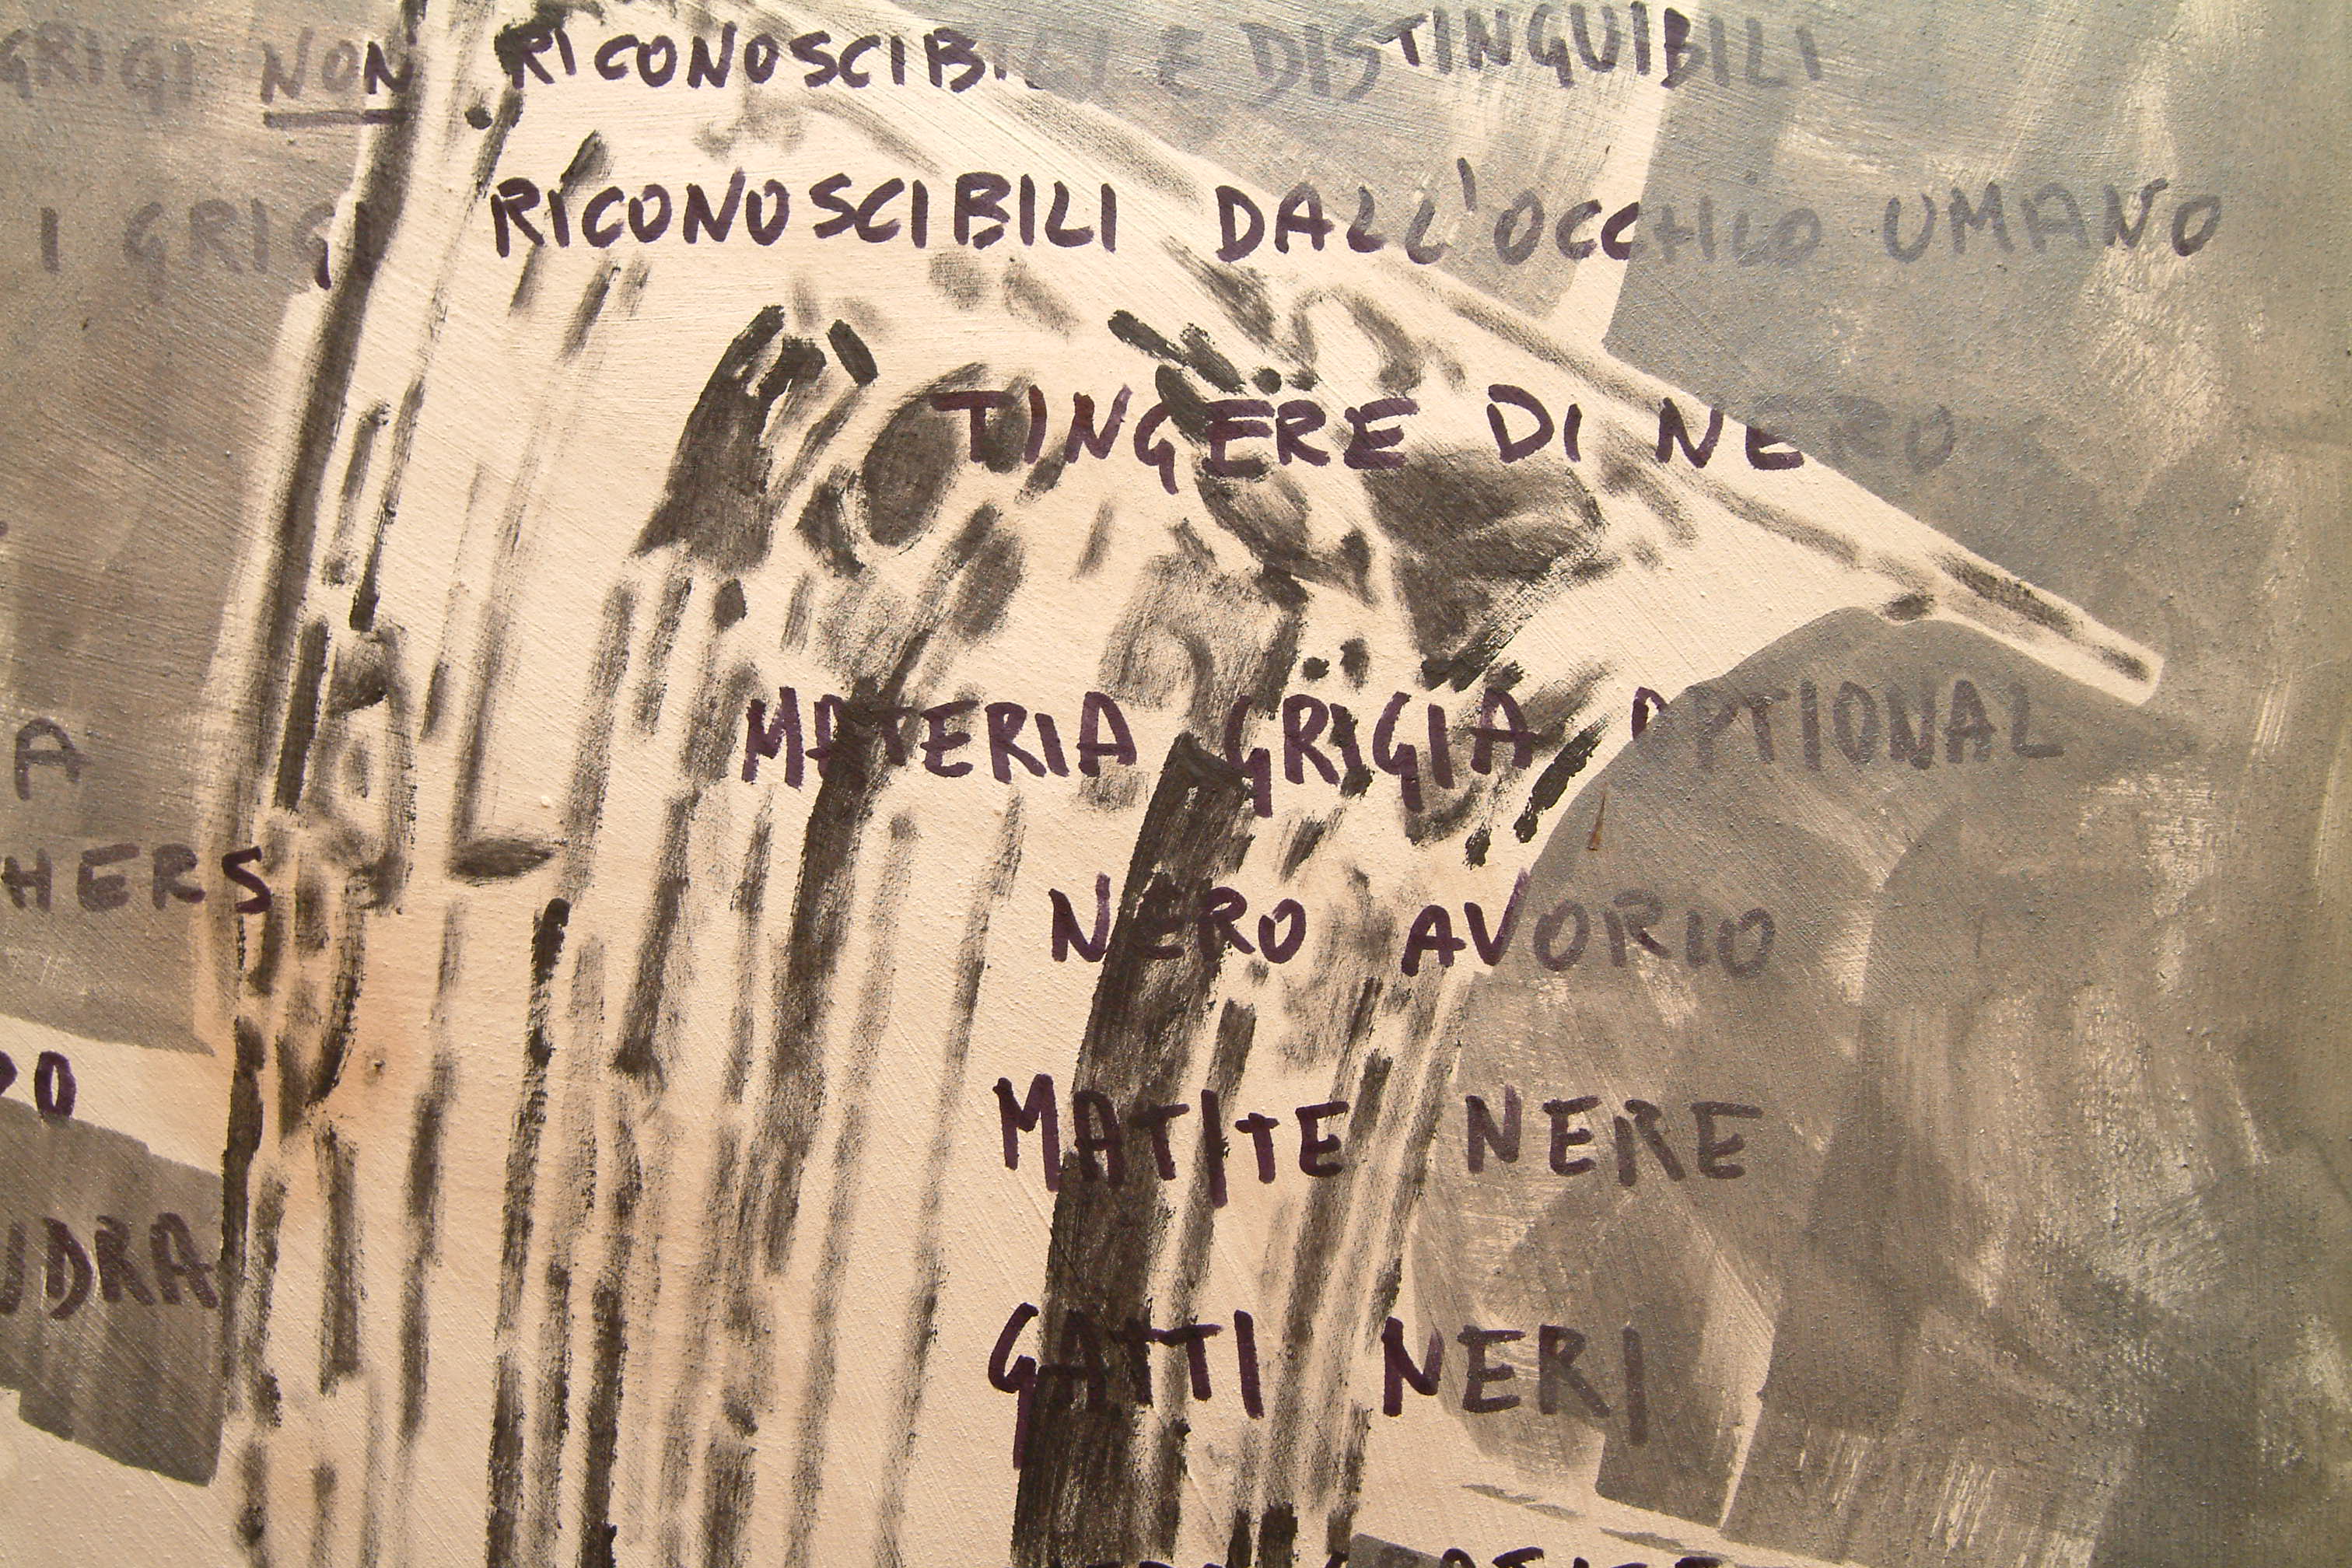 GRIGI NON RICONOSCIBILI E DISTINGUIBILI
I GRIGI RICONOSCIBILI DALL'OCCHIO UMANO
TINGERE DI NERO
A MATERIA GRIGIA OPTIONAL
HERS NERO AVORIO
RO MATITE NERE
UDRA
GATTI NERI